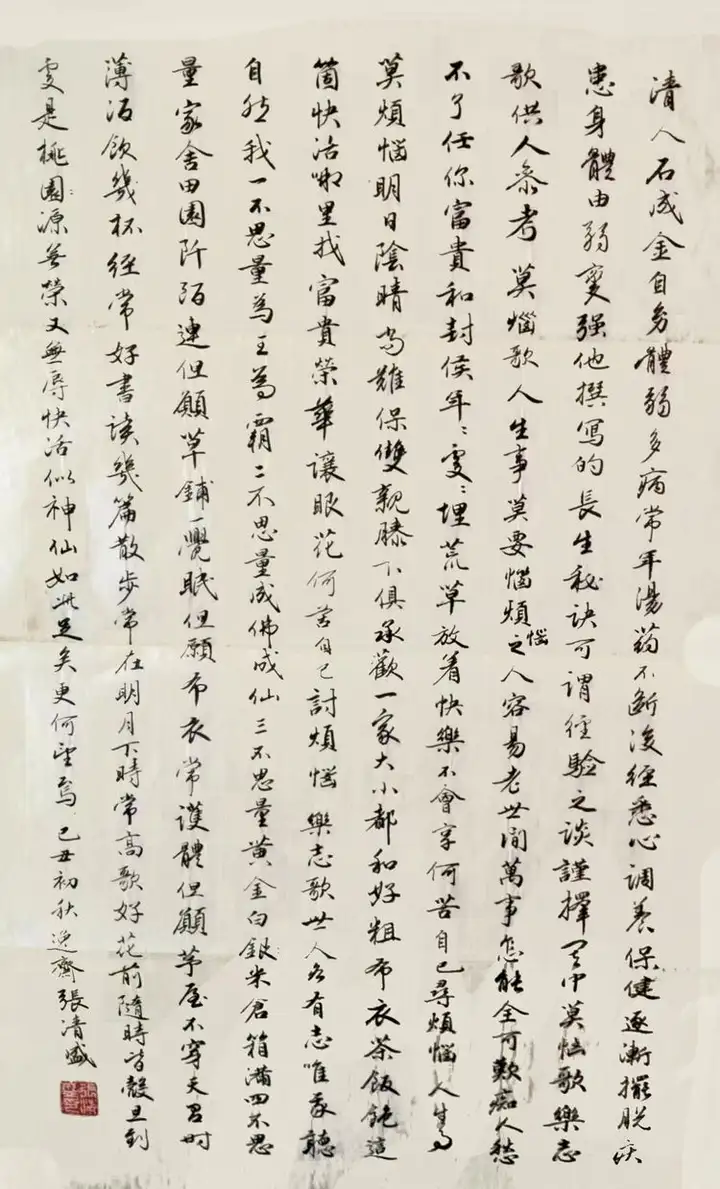 清人石成金自身體弱多病常年湯药不斷後經悉心調養保健逐漸擺脱疾
患身體由弱變强他撰写的長生秘诀可謂经驗之談謹擇其中莫恼歌樂志
歌供人參考 莫惱歌人生事莫要惱煩惱之人容易老世間萬事怎能全可歎痴人愁
不了任你富貴和封侯年々處々埋荒草放着快樂不會享何苦自己尋煩惱人生事
莫煩惱明日陰晴尚難保雙親膝下俱承歡一家大小都和好粗布衣茶飯飽這
箇快活哪里找富貴榮華讓眼花何苦自己討煩惱 樂志歌世人各有志唯我聽
自然我一不思量為王為霸二不思量成佛成仙三不思量黄金白銀米倉箱滿四不思
量家舍田園阡陌連但願草鋪一覺眠但願布衣常護體但願茅屋不穿天君时
薄酒飲幾杯经常好書读幾篇散步常在明月下時常高歌好花前隨時皆
處是桃園源無榮又無辱快活似神仙如此足矣更何望焉 己丑初秋逸齋張清盛